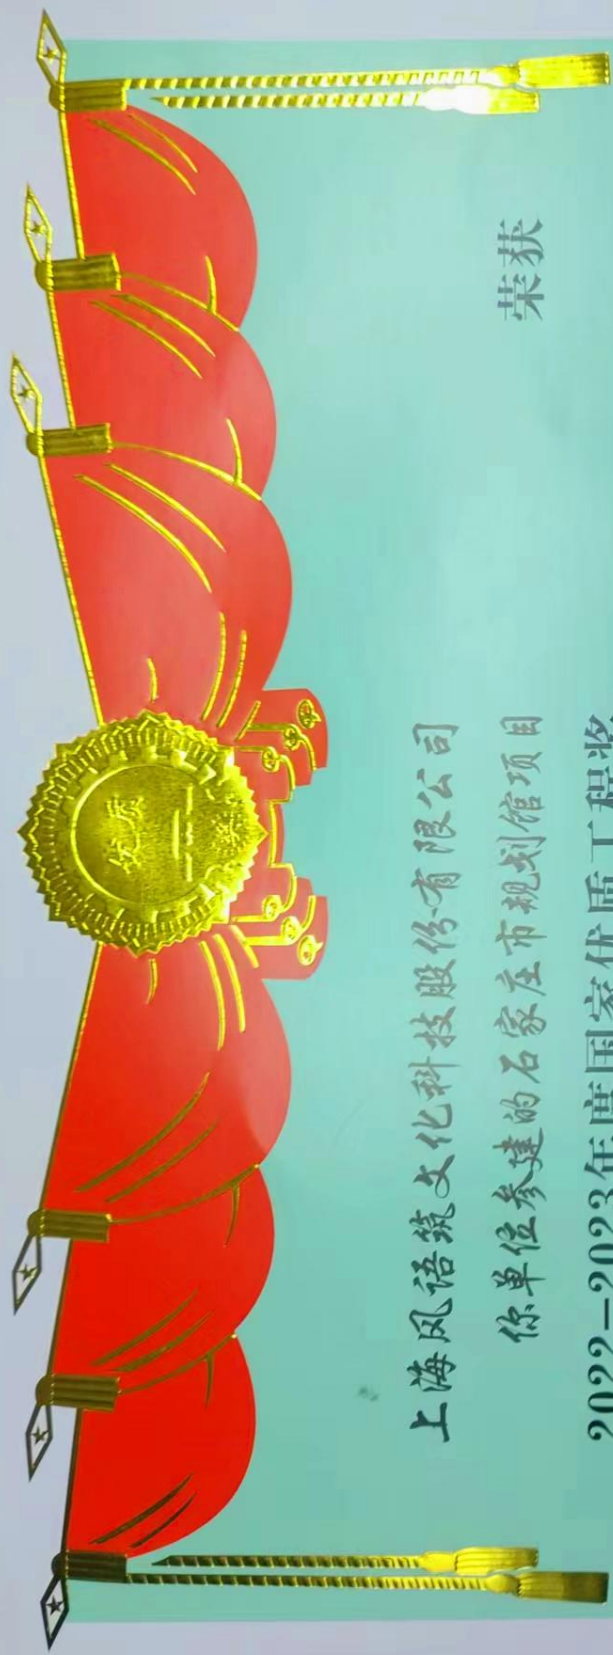 优质
奖
上海风语筑文化科技股份有限公司
你单位参建的石家庄市规划馆项目 荣获
2022-2023年度国家优质工程奖